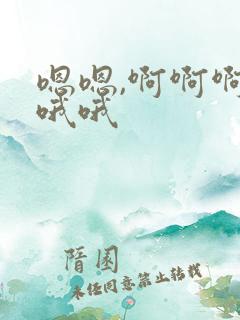 嗯嗯,啊啊啊
哦哦
隌国
未经同意禁止转载